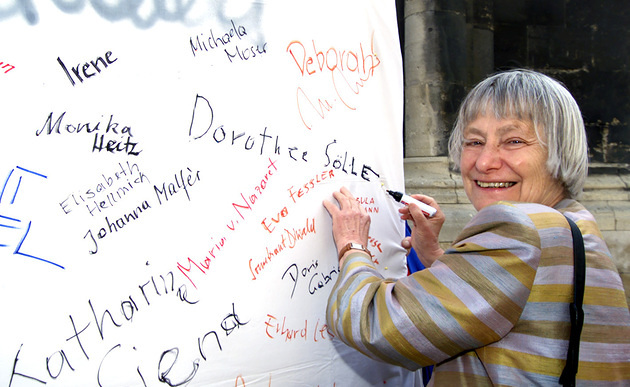 Irene
Michaela
Moser
Deborah
Monika
Heitz
Dorothee SÖLLE
Elisabeth
Heimich
Johanna Malfèr
Maria v. Nazaret
Eva FESSLER
Irmtraut Oswald
Doris
Gabriel
Katharina
Siena
Erhard